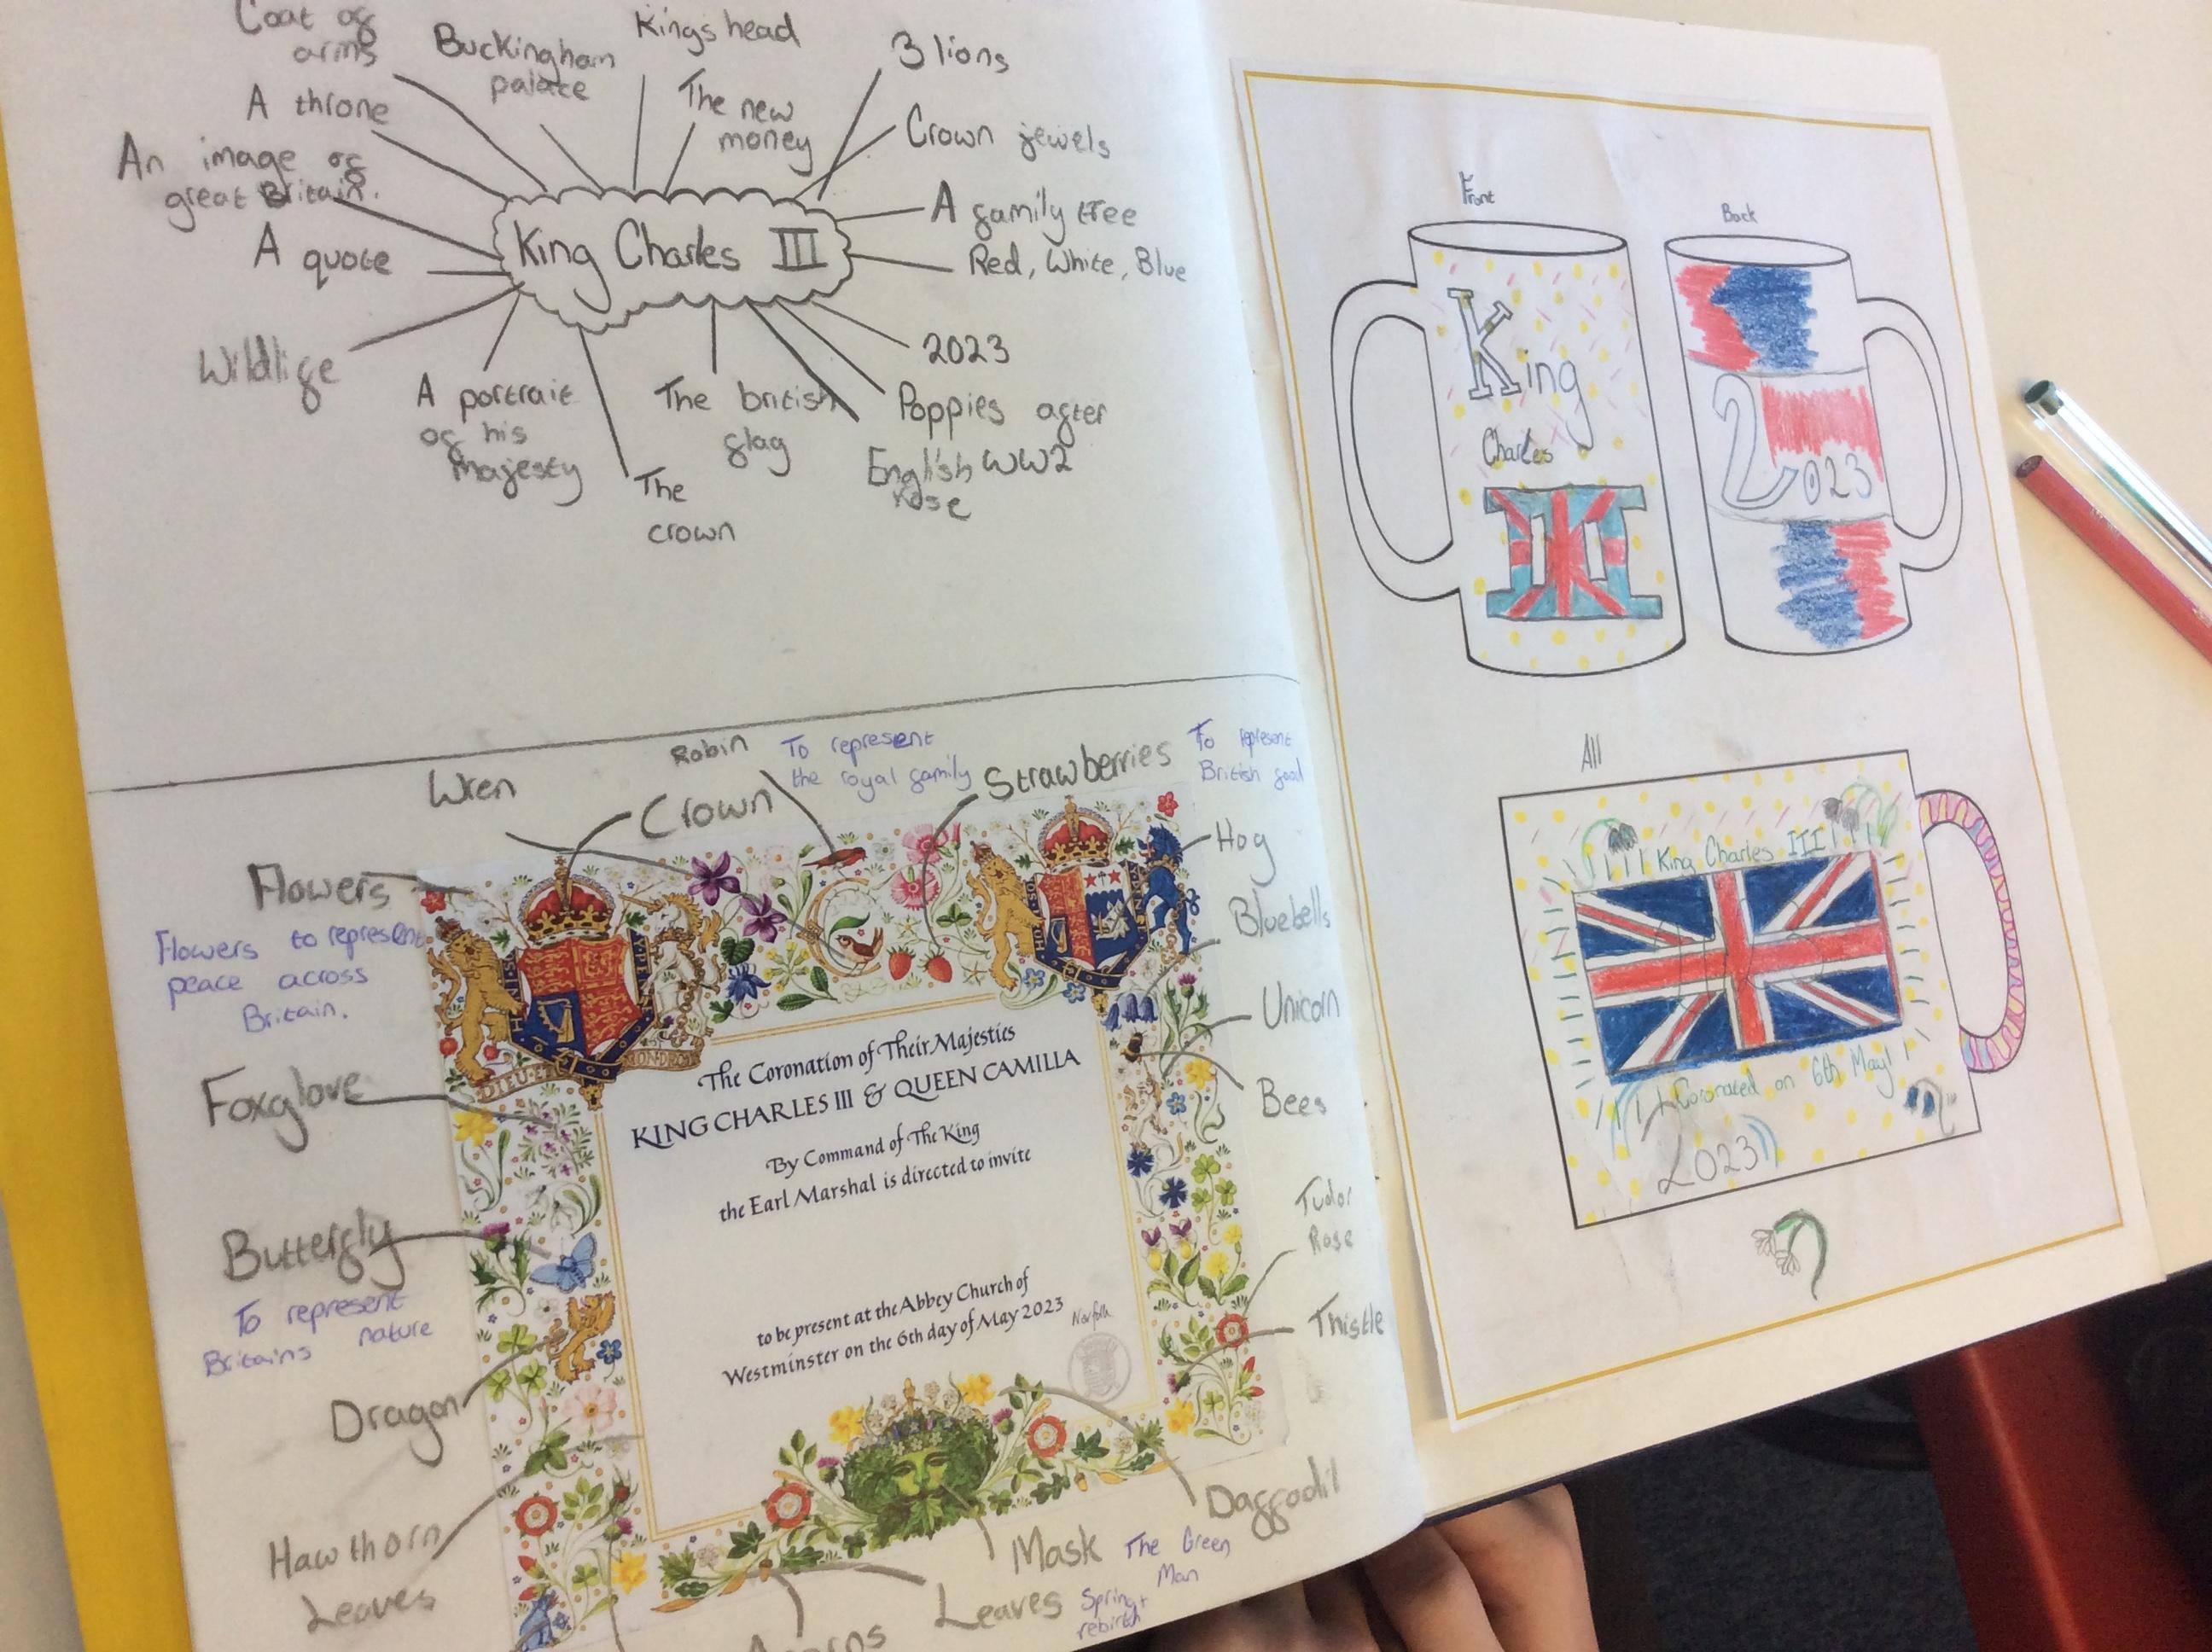 Coat of
arms
Buckingham
palace
Kings head
3 lions
A throne
The new
money
Crown jewels
An image of
great Britain.
A family tree
A quote
King Charles III
Red, White, Blue
Wildlife
2023
A portrait
of his
Majesty
The british
flag
Poppies after
WW2
English
Rose
The
crown
Wren
Robin
To represent
the royal family
Crown
Strawberries
To represent
British food
Flowers
Flowers to represent
peace across
Britain.
Hog
Bluebells
Unicorn
Bees
Foxglove
Butterfly
To represent
Britains nature
Dragon
Hawthorn
Leaves
Tudor
Rose
Thistle
Daffodil
Mask
The Green
Man
Spring +
rebirth
Leaves
Acorns
DIEU ET MON DROIT
The Coronation of Their Majesties
KING CHARLES III & QUEEN CAMILLA
By Command of The King
the Earl Marshal is directed to invite
to be present at the Abbey Church of
Westminster on the 6th day of May 2023
Norfolk
Front
Back
King
Charles
III
2023
All
King Charles III
Coronated on 6th May
2023